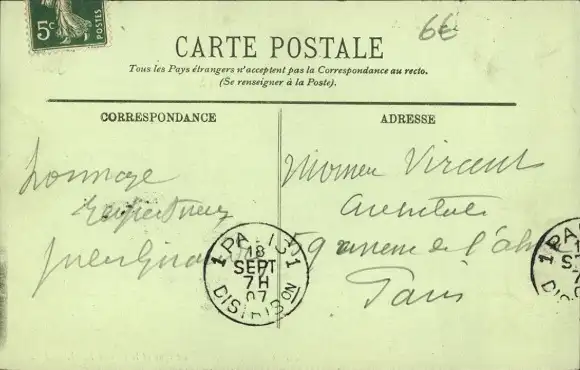 5c
POSTES
6€
CARTE POSTALE
Tous les Pays étrangers n'acceptent pas la Correspondance au recto.
(Se renseigner à la Poste).
CORRESPONDANCE
ADRESSE
hommage
Vincent
Architecte
59 avenue de l'
Paris
18
SEPT
7H
07
DISTRIBON